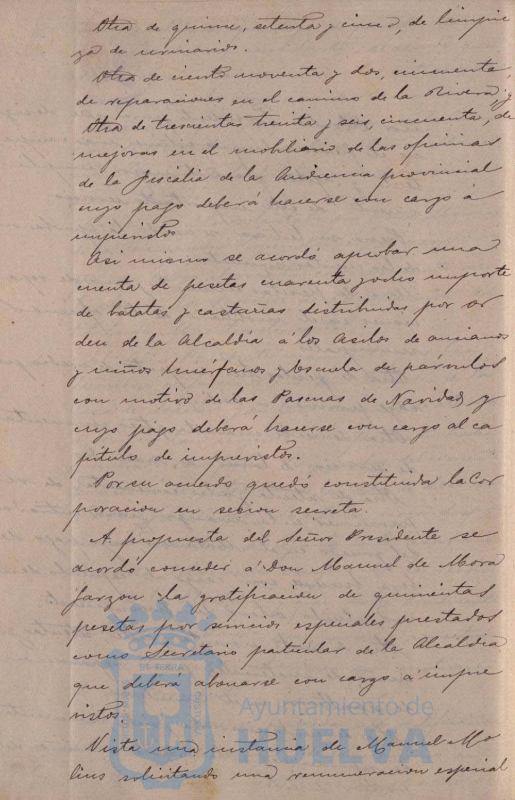 Otra de quince, setenta y cinco, de limpie
za de urinarios.
Otra de ciento noventa y dos, cincuenta,
de reparaciones en el camino de la Rivera; y
Otra de trescientas treinta y seis, cincuenta, de
mejoras en el mobiliario de las oficinas
de la Fiscalia de la Audiencia provincial
cuyo pago deberá hacerse con cargo á
imprevistos
Asi mismo se acordó aprobar una
cuenta de pesetas cuarenta y ocho importe
de batatas y castañas distribuidas por or
den de la Alcaldía á los Asilos de ancianos
y niños huérfanos y Escuela de párvulos
con motivo de las Pascuas de Navidad, y
cuyo pago deberá hacerse con cargo al ca
pitulo de imprevistos.
Por su acuerdo quedó constituida la Cor
poracion en sesion secreta.
A propuesta del Señor Presidente se
acordó conceder á Don Manuel de Mora
Garzon la gratificacion de quinientas
pesetas por servicios especiales prestados
como Secretario paticular de la Alcaldía
que deberá abonarse con cargo á impre
vistos.
Vista una instancia de Manuel Mo
lins solicitando una remuneracion especial
Ayuntamiento de
HUELVA